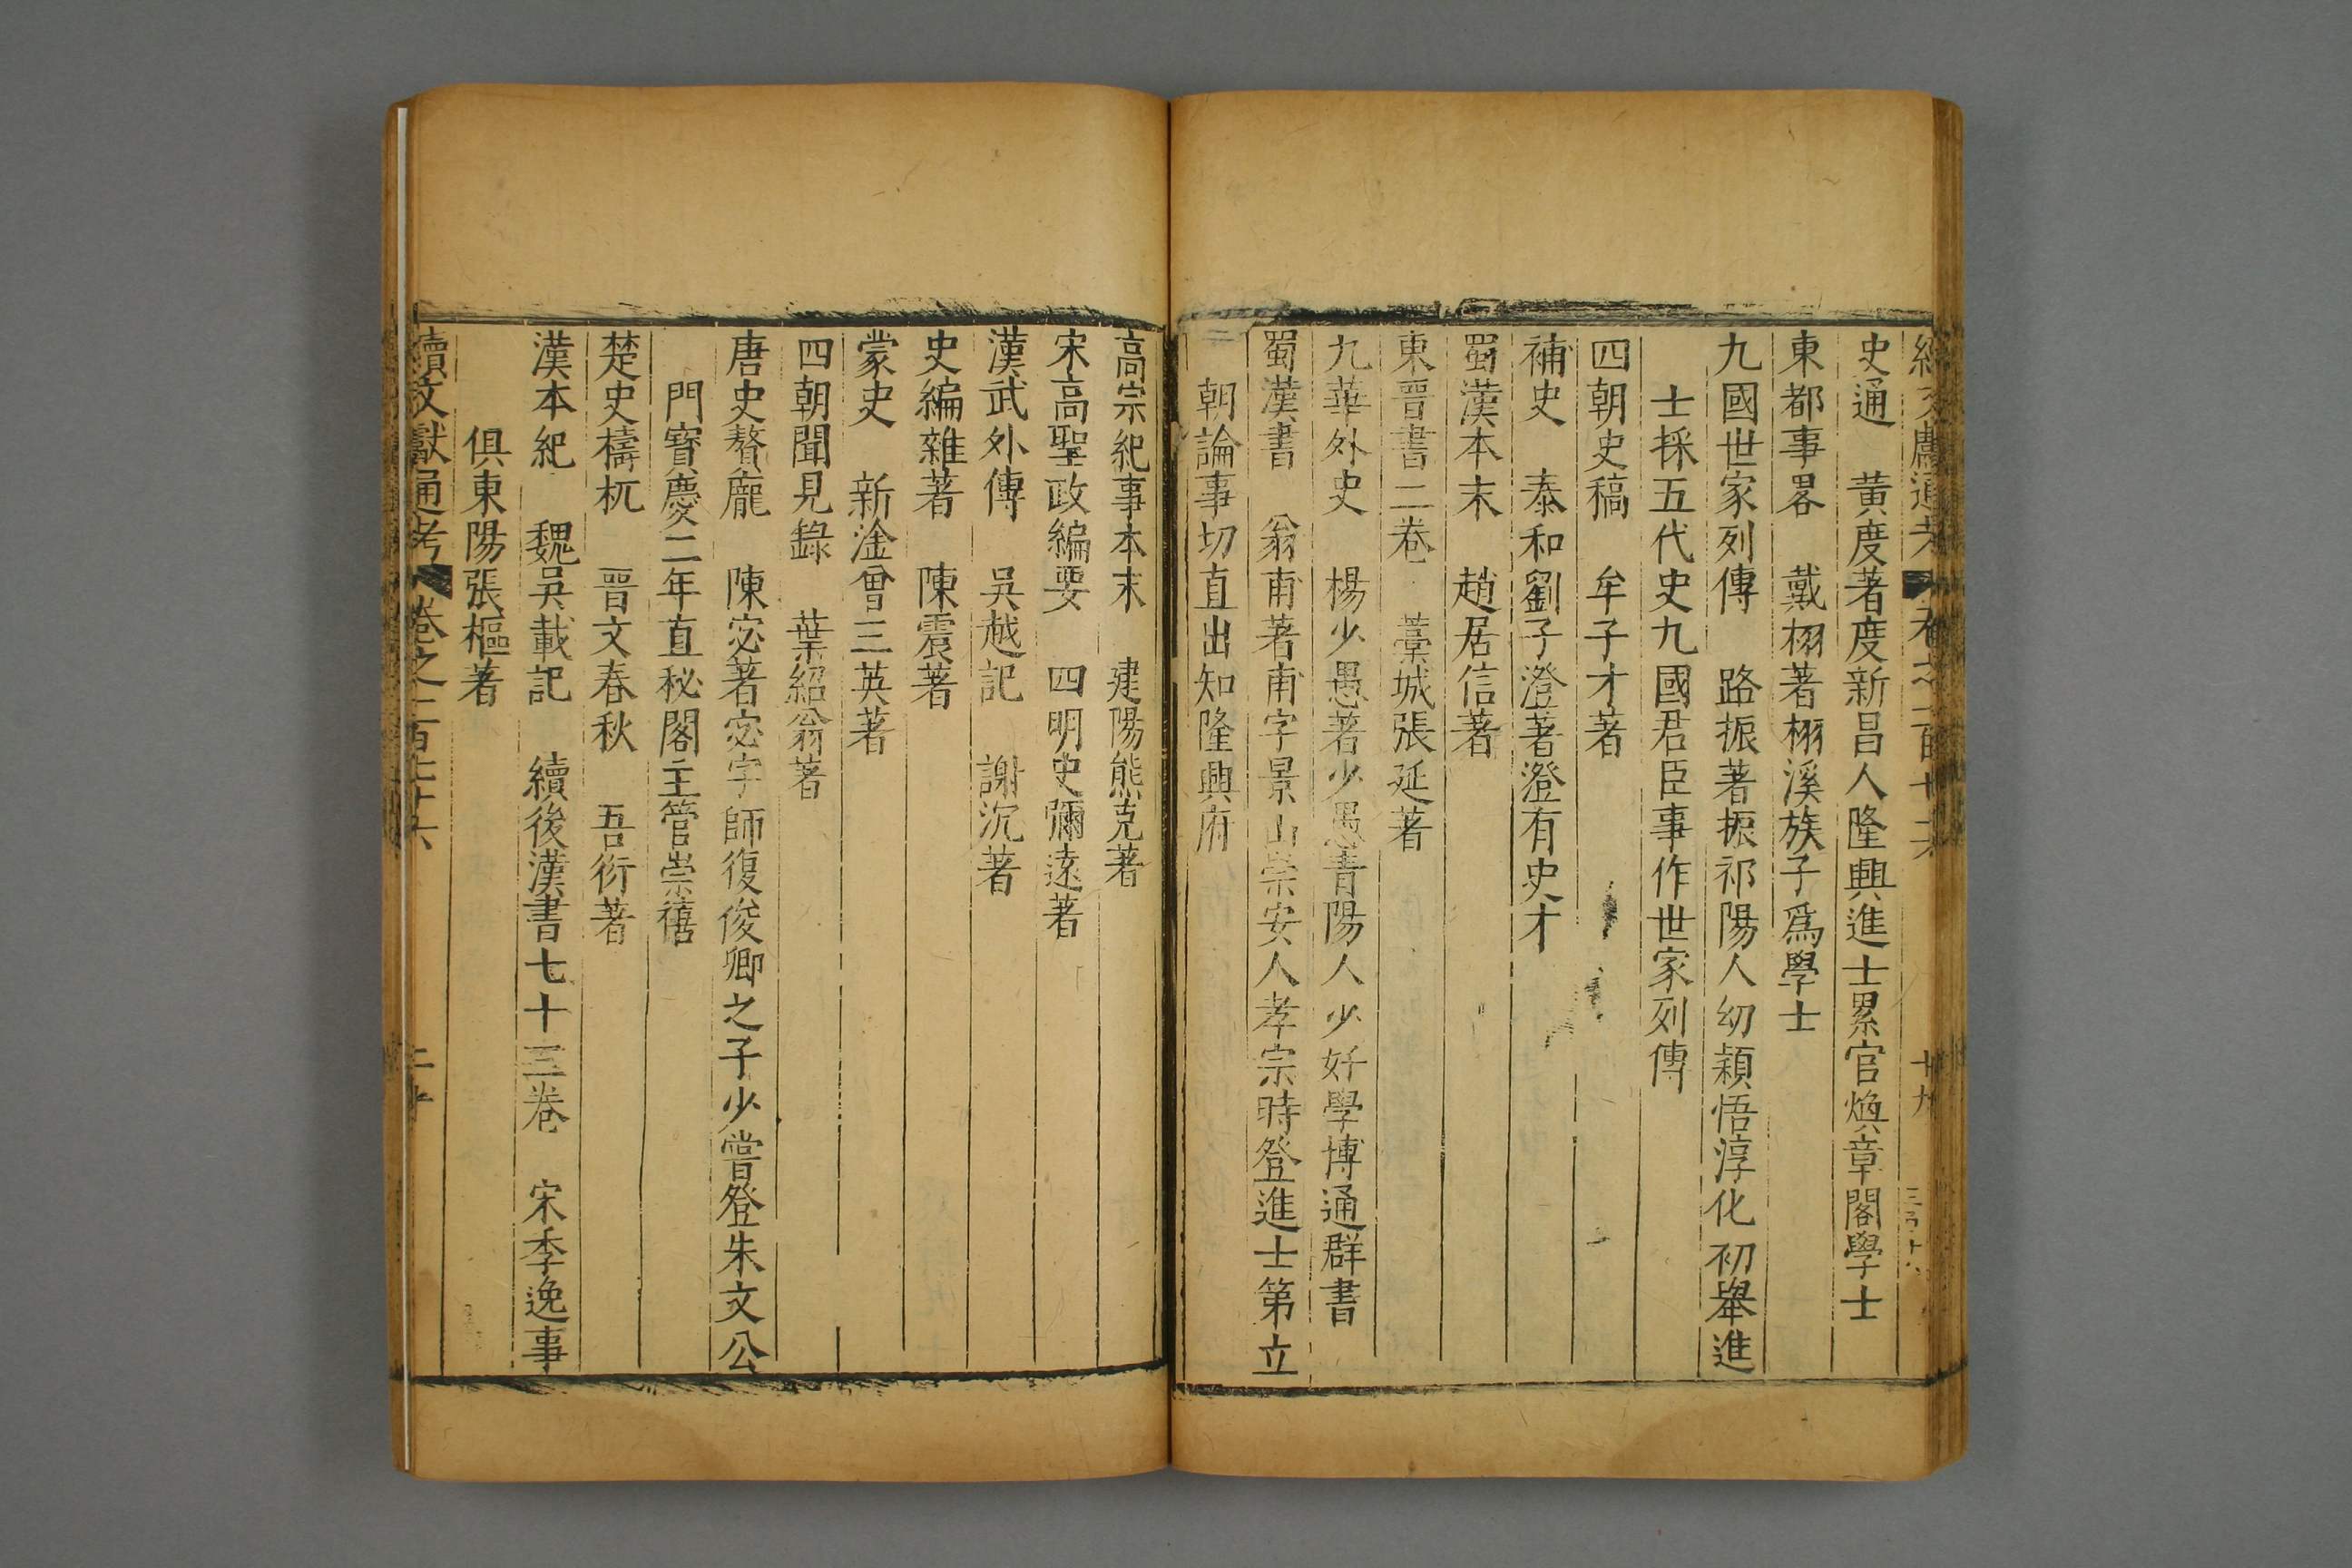 史通　黄度著度新昌人隆興進士累官煥章閣學士
東都事畧　戴栩著栩溪族子爲學士
九國世家列傳　路振著振祁陽人幼穎悟淳化初舉進
士採五代史九國君臣事作世家列傳
四朝史稿　牟子才著
補史　泰和劉子澄著澄有史才
蜀漢本末　趙居信著
東晉書二卷　藁城張延著
九華外史　楊少愚著少愚青陽人少好學博通群書
蜀漢書　翁甫著甫字景山崇安人孝宗時登進士第立
朝論事切直出知隆興府
高宗紀事本末　建陽熊克著
宋高聖政編要　四明史彌遠著
漢武外傳　吳越記　謝沉著
史編雜著　陳震著
蒙史　新淦曾三英著
四朝聞見錄　葉紹翁著
唐史贅厖　陳宓著宓字師復俊卿之子少嘗登朱文公
門寳慶二年直秘閣主管崇禧
楚史檮杌　晉文春秋　吾衍著
漢本紀　魏吳載記　續後漢書七十三卷　宋季逸事
俱東陽張樞著
續文獻通考　卷之一百七十六